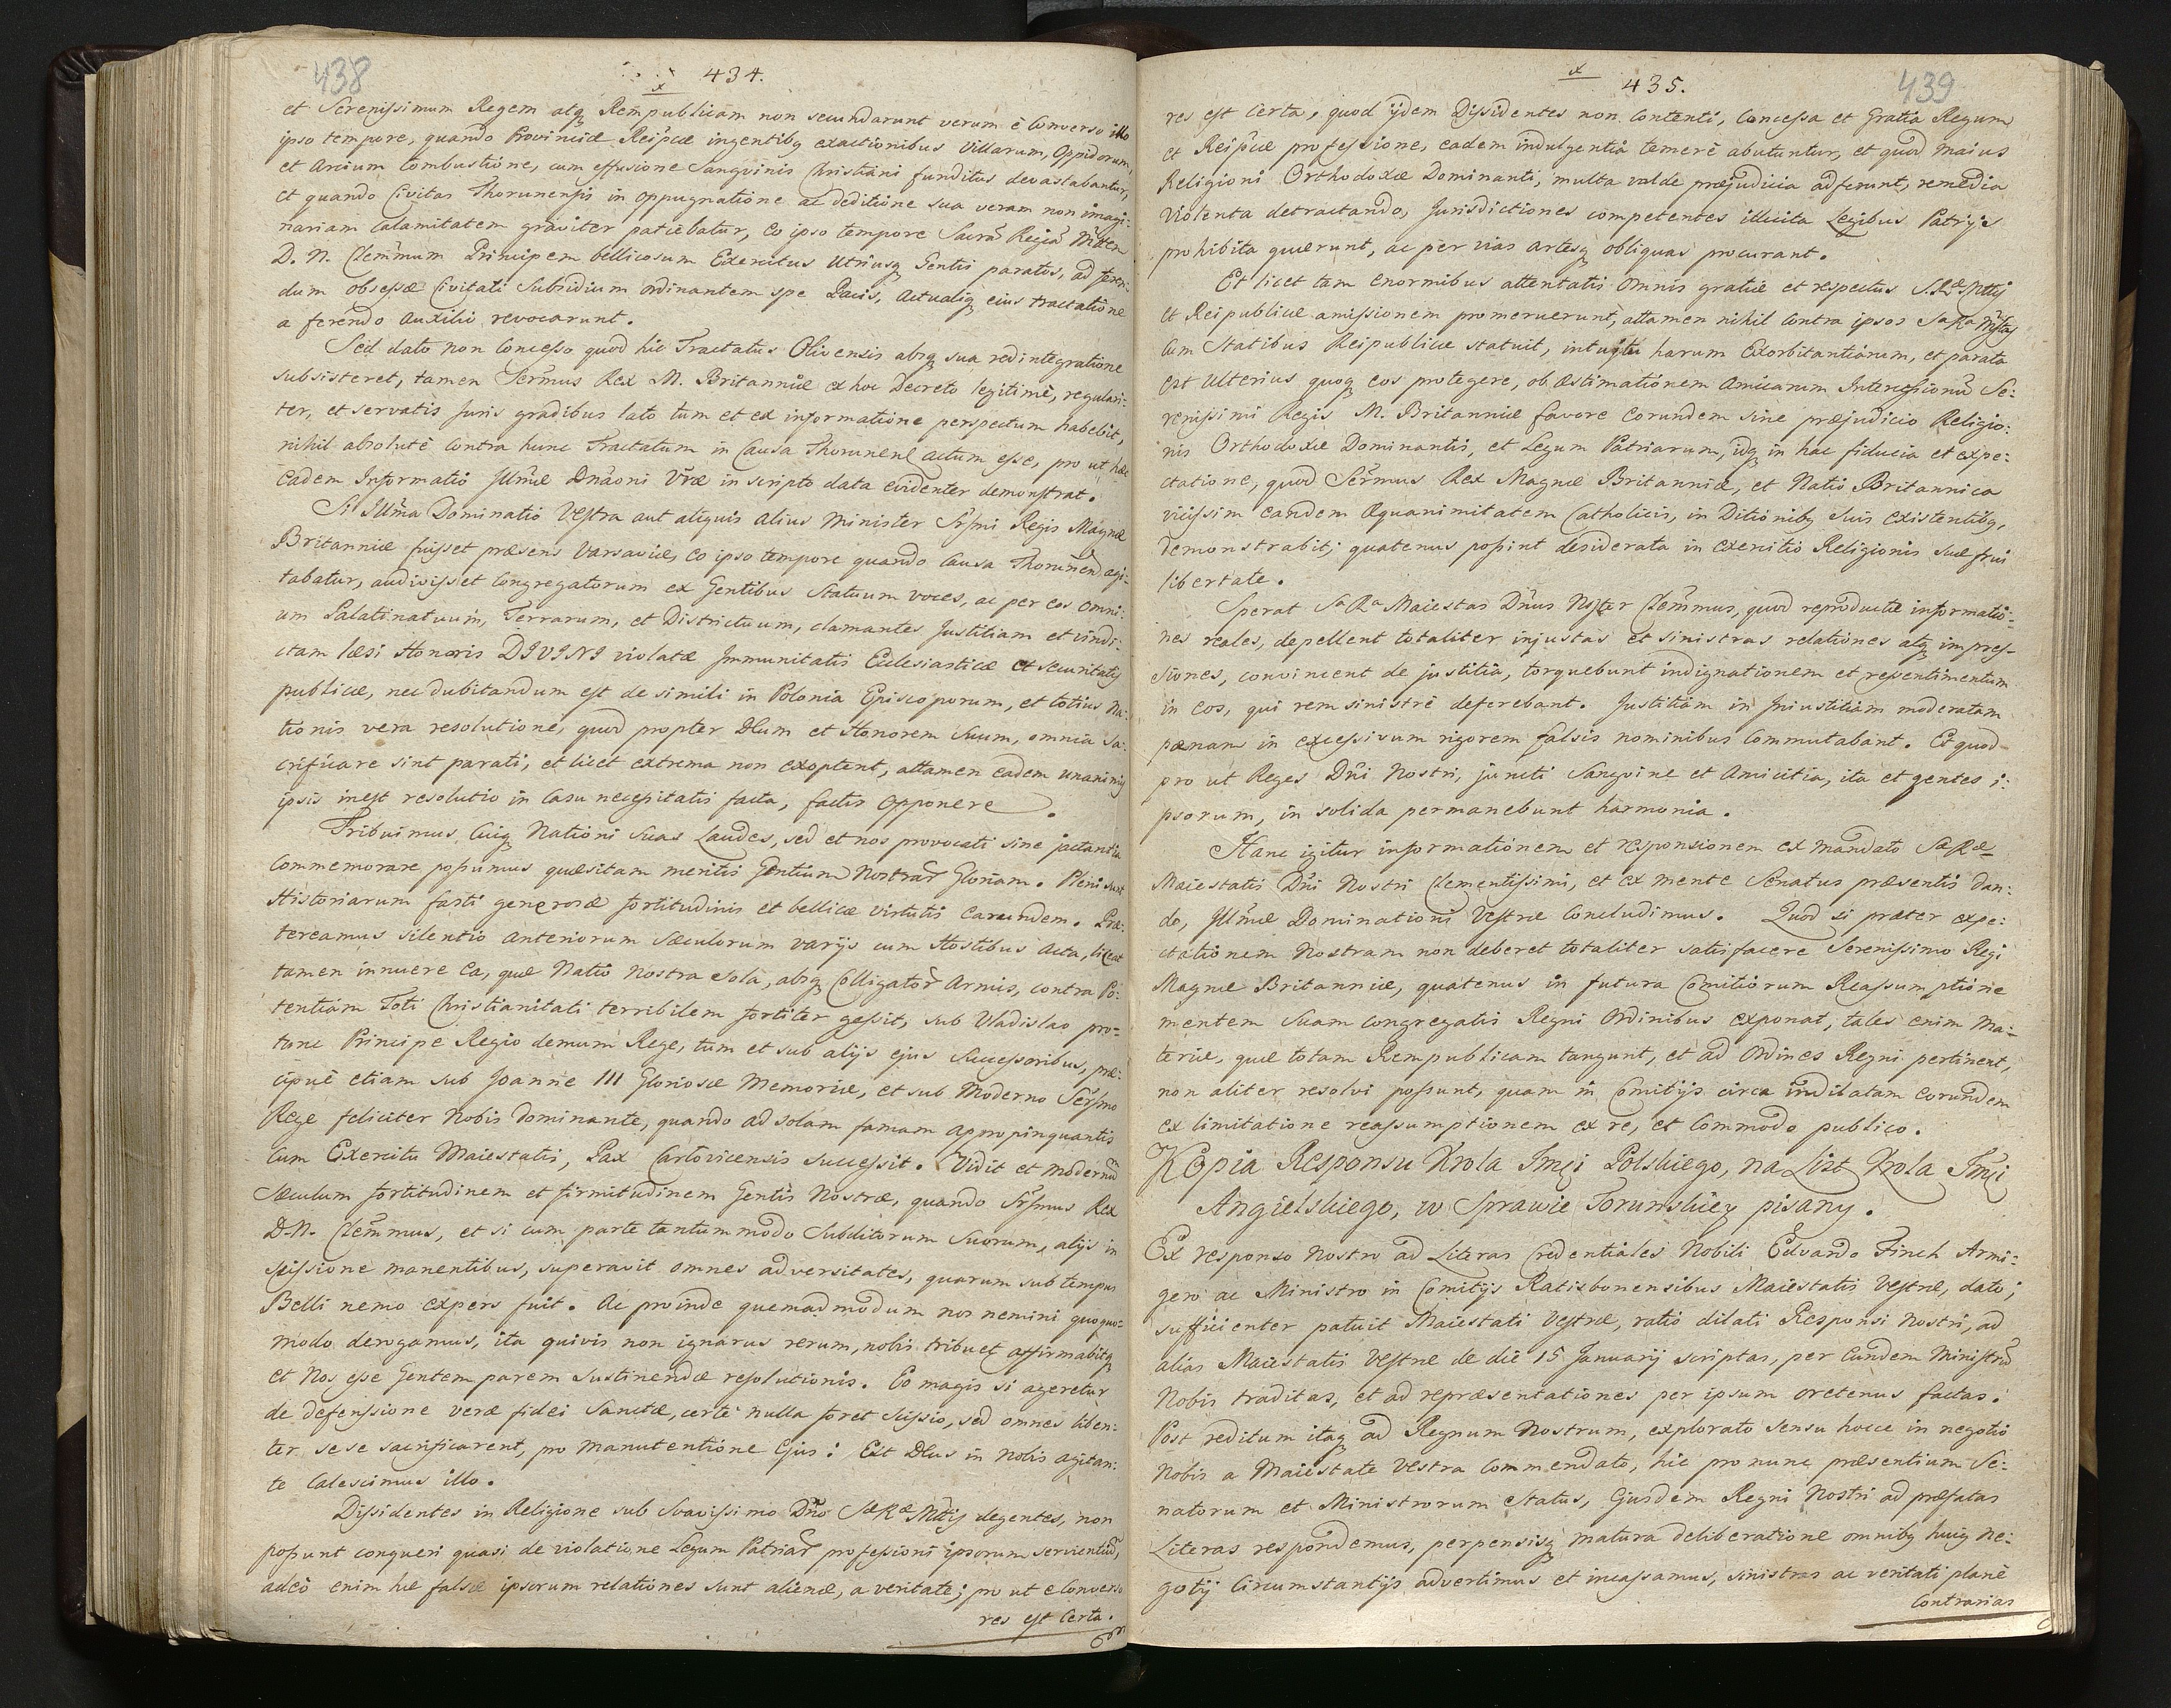 438
434.
x
et Serenissimum Regem atq Rempublicam non secundarunt verum è Converso illo
ipso tempore, quando Provinciæ Reipcæ ingentibq exactionibus Villarum, Oppidorum,
et Arcium Combustione, cum effusione Sangvinis Christiani funditus devastabantur,
et quando Civitas Thorunensis in oppugnatione ac deditione sua veram non imagi:
nariam Calamitatem graviter patiebatur, eo ipso tempore Sacra Regia Mttem
D. N. Clemmum Principem bellicosum Exercitus Utriusq Gentis paratos, ad feren:
dum obsessæ Civitati Subsidium ordinantem spe Pacis, Actualiq eius tractatione
a ferendo Auxilio revocarunt.
Sed dato non Concesso quod hic Tractatus Olivensis absq sua redintegratione
subsisteret, tamen Sermus Rex M. Britanniæ ex hoc Decreto legitimè, regulari:
ter, et servatis Juris gradibus lato tum et ex informatione perspectum habebit,
nihil absolutè Contra hunc Tractatum in Causa Thorunen actum esse, pro ut hæc
eadem Informatio Illmæ Dnaoni Vræ in scripto data evidenter demonstrat.
Si Illma Dominatio Vestra aut aliquis alius Minister Srsmi Regis Magnæ
Britanniæ fuisset præsens Varsaviæ, eo ipso tempore quando Causa Thorunen agi:
tabatur, audivisset Congregatorum ex Gentibus Statuum voces, ac per eos omni:
um Palatinatuum, Terrarum, et Districtuum, clamantes Justitiam et vindi:
ctam læsi Honoris DIVINI violatæ Immunitatis Ecclesiasticæ et securitatis
publicæ, nec dubitandum est de simili in Polonia Episcoporum, et totius Na:
tionis vera resolutione, quod propter Dlum et Honorem Suum, omnia Sa:
crificare sint parati, et licet extrema non exoptent, attamen eadem unanimis
ipsis inest resolutio in Casu necessitatis facta, factis opponere.
Tribuimus Cuiq Nationi Suas Laudes, sed et nos provocati sine jactantia
Commemorare possumus quæsitam meritis Gentium Nostrar Gloriam. Pleni sunt
Historiarum fasti generosæ fortitudinis et bellicæ virtutis earundem. Præ:
tereamus silentio anteriorum Sæculorum varijs cum Hostibus Acta, liceat
tamen innuere ea, quæ Natio nostra sola, absq Colligator Armis, contra Po:
tentiam Toti Christianitati terribilem fortiter gessit, sub Vladislao pro=
tunc Principe Regio demum Rege, tum et sub alijs ejus Successoribus, præ:
cipuè etiam sub Joanne III Gloriosæ Memoriæ, et sub Moderno Sersmo
Rege feliciter Nobis dominante, quando ad solam famam appropinquantis
Cum Exercitu Maiestatis, Pax Carlovicensis successit. Vidit et modernu
Sæculum fortitudinem et firmitudinem Gentis Nostræ, quando Srsmus Rex
D. N. Clemmus, et si cum parte tantummodo Subditorum Suorum, alijs in
scissione manentibus, superavit omnes adversitates, quarum sub tempus
Belli nemo expers fuit. Ac proinde quemadmodum nos nemini quoquo=
modo derogamus, ita quivis non ignarus rerum, nobis tribuet affirmabitq
et Nos esse Gentem parem Sustinendæ resolutionis. Eo magis si ageretur
de defenssione veræ fidei Sanctæ, certè nulla foret scissio, sed omnes liben:
ter sese sacrificarent, pro manutentione Ejus: Est Dlus in nobis agitan:
te Calescimus illo.
Dissidentes in Religione sub Svavissimo Dno Sæ Ræ Mttis degentes, non
possunt conqueri quasi de violatione Legum Patriar professioni ipsorum servientiu,
adeò enim hæ falsæ ipsorum relationes sunt alienæ, a veritate; pro ut e Converso
res est Certa.
x
435.
439
res est Certa, quod ijdem Dissidentes non Contenti, Concessa et Gratia Regum
et Reipcæ professione, eadem indulgentiâ temerè abutuntur, et quod maius
Religioni Orthodoxæ Dominanti, multa valde præjudicia adferunt, remedia
violenta detractando, Jurisdictiones competentes illicita Legibus Patrijs
prohibita quærunt, ac per vias artesq obliquas procurant.
Et licet tam enormibus attentatis Omnis gratiæ et respectus S. Ræ Mttis
et Reipublicæ amissionem promeruerunt, attamen nihil Contra ipsos Sa Ra Mstas
Cum Statibus Reipublicæ statuit, intuitu harum Exorbitantiarum, et parata
est Ulterius quoq eos protegere, ob Æstimationem Amicarum Intercessionu Se:
renissimi Regis M. Britanniæ favore Eorundem sine præjudicio Religio:
nis Orthodoxæ Dominantis, et Legum Patriarum, idq in hac fiducia et expe:
ctatione, quod Sermus Rex Magnæ Britanniæ, et Natio Britannica
vicissim eandem Æquanimitatem Catholicis, in Ditionibq Suis existentibq,
demonstrabit; quatenus possint desiderata in exercitio Religionis suæ frui
libertate.
Sperat Sa Ra Maiestas Dnus Noster Clemmus, quod reproductæ informatio:
nes reales, depellent totaliter injustas et sinistras relationes atq impres-
siones, convincent de justitiâ, torquebunt indignationem et resentimentum
in eos, qui rem sinistrè deferebant. Justitiam in Iniustitiam moderatam
pœnam in excessivum rigorem falsis nominibus Commutabant. Et quod
pro ut Reges Dni Nostri, juncti Sangvine et Amicitia, ita et gentes i:
psorum, in solida permanebunt harmonia.
Hanc igitur informationem et responsionem ex mandato Sæ Ræ
Maiestatis Dni Nostri Clementissimi, et ex mente Senatus præsentis dan:
do, Illmæ Dominationi Vestræ Concludimus. Quod si præter expe:
ctationem Nostram non deberet totaliter satisfacere Serenissimo Regi
Magnæ Britanniæ, quatenus in futura Comitiorum Reassumptione
mentem Suam congregatis Regni Ordinibus exponat, tales enim Ma:
teriæ, quæ totam Rempublicam tangunt, et ad Ordines Regni pertinent,
non aliter resolvi possunt, quam in Comitijs circa inditatam eorundem
ex limitatione reassumptionem ex re, et Commodo publico.
Kopia Responsu Krola Jmci Polskiego, na List Krola Jmci
Angielskiego, w Sprawie Torunskiey pisany.
Ex responso Nostro ad Literas Credentiales Nobili Edvardo Finch Armi:
gero ac Ministro in Comitijs Ratisbonensibus Maiestatis Vestræ, dato;
sufficienter patuit Maiestati Vestræ, ratio dilati Responsi Nostri, ad
alias Maiestatis Vestræ de die 15 Januarij scriptas, per Eundem Ministru
Nobis traditas, et ad repræsentationes per ipsum oretenus factas.
Post reditum itaq ad Regnum Nostrum, explorato sensu hocce in negotio
Nobis a Maiestate Vestra Commendato, hic pro nunc præsentium Se:
natorum et Ministrorum Status, Ejusdem Regni Nostri ad præfatas
Literas respondemus, perpensisq matura deliberatione omnibq huiq Ne:
gotij Circumstantijs advertimus et incassamus, sinistras ac veritati planè
Contrarias